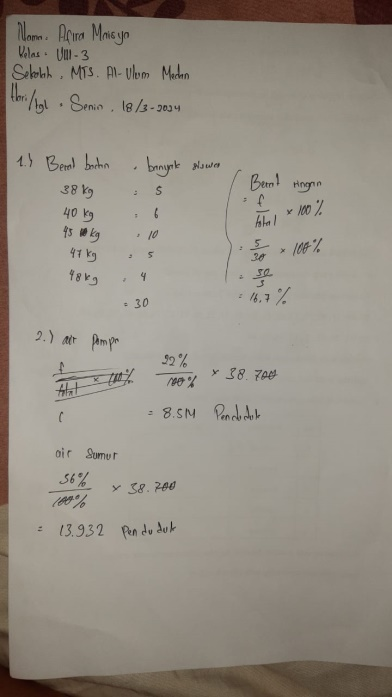 Nama : Afira Maisya
Kelas : VIII-3
Sekolah : MTS. Al-Ulum Medan
Hari/tgl : Senin, 18/3-2024
1.) Berat badan : banyak siswa
38 kg : 5
40 kg : 6
45 kg : 10
47 kg : 5
48 kg : 4
= 30
Berat ringan
= f/total × 100%
= 5/30 × 100%
= 50/3
= 16.7 %
2.) air Pompa
f/total × 100%
22%/100% × 38.700
= 8.514 Penduduk
air Sumur
36%/100% × 38.700
= 13.932 Penduduk